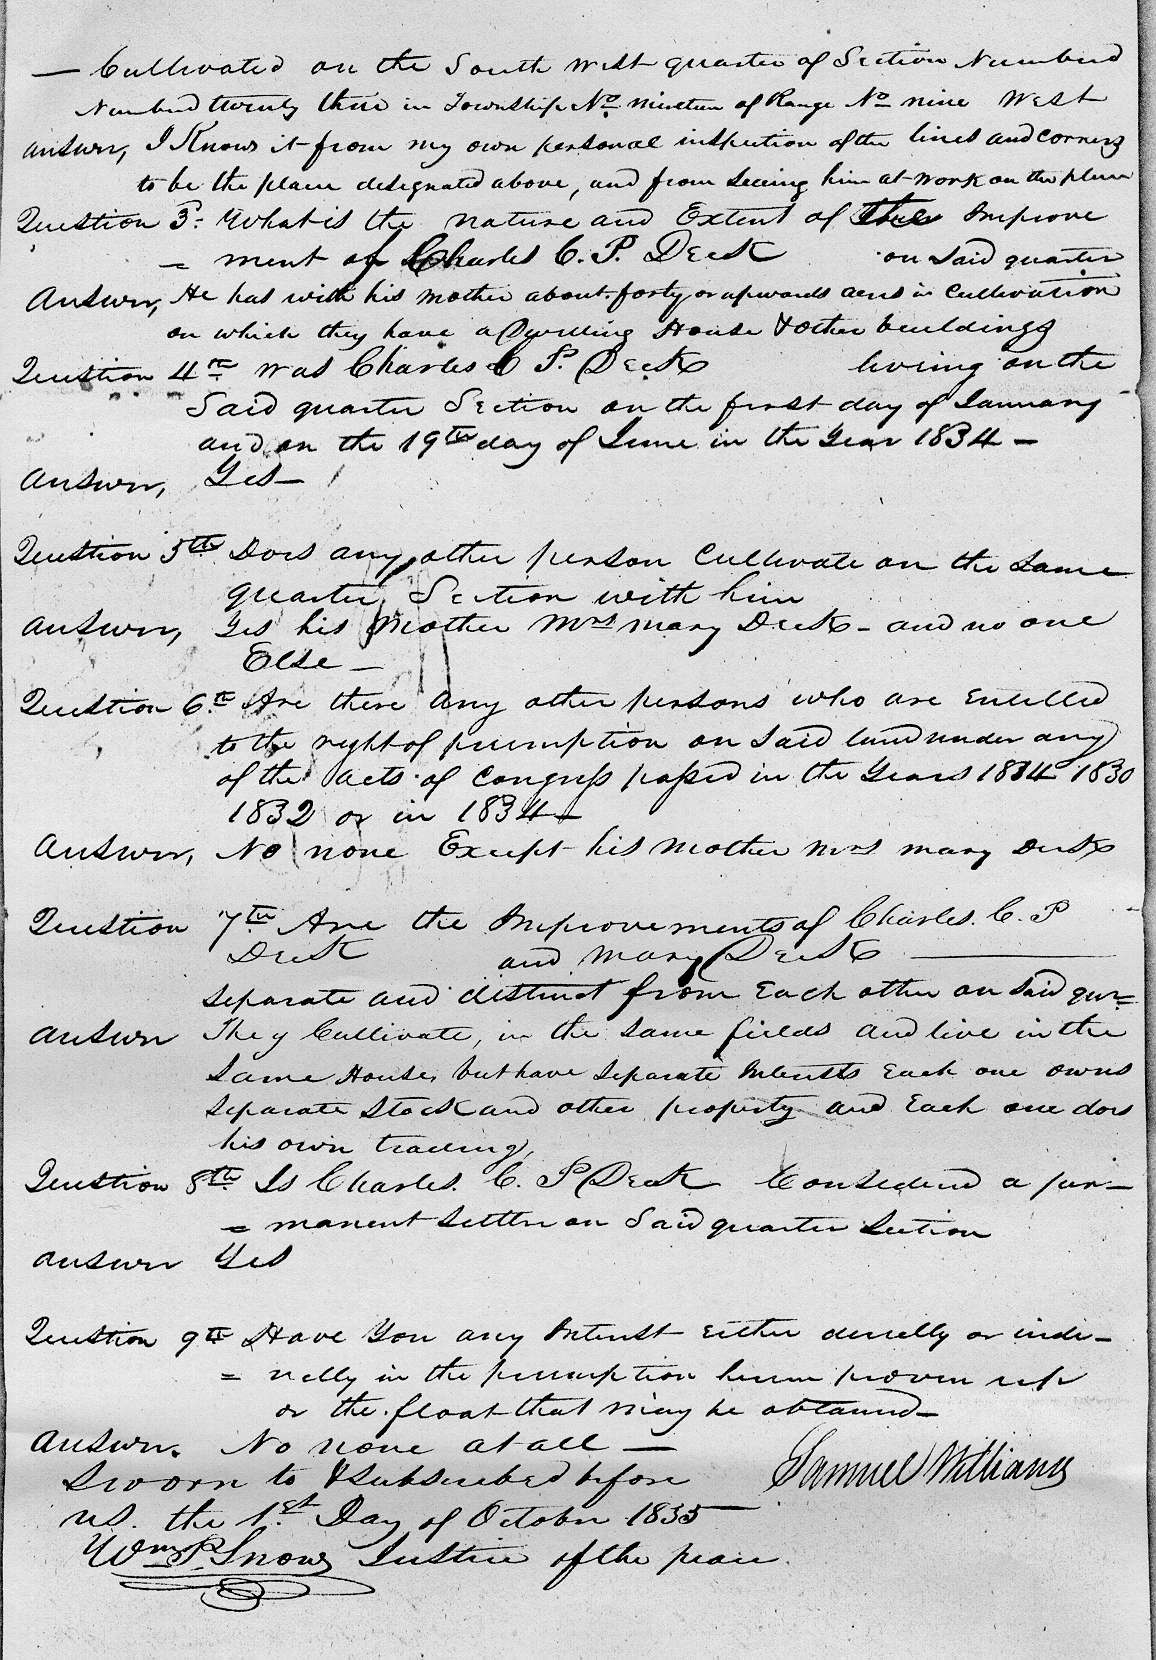 — Cultivated on the South West quarter of Section Numberd
Numberd twenty three in Township No nineteen of Range No nine West
answer, I Know it from my own personal inspection of the lines and corners
to be the place designated above, and from seeing him at work on the place
Question 3d What is the nature and Extent of the Improve
= ment of Charles C. P. Deck on said quarter
Answer, He has with his mother about forty or upwards acres in Cultivation
on which they have a Dwelling House & other buildings
Question 4th was Charles C P. Deck living on the
Said quarter Section on the first day of January
and on the 19th day of June in the Year 1834 —
Answer, Yes —
Question 5th Does any other person Cultivate on the same
quarter Section with him
Answer, Yes his Mother Mrs mary Deck - and no one
Else —
Question 6th Are there any other persons who are Entitled
to the right of preemption on said land under any
of the acts of Congress passed in the Years 1814 1830
1832 or in 1834 —
Answer, No none Except his Mother Mrs mary Deck
Question 7th Are the Improvements of Charles. C. P
Deck and Mary Deck
separate and distinct from Each other on said qur=
answer They Cultivate, in the same fields and live in the
Same House, but have separate Interests Each one owns
separate stock and other property and Each one does
his own trading,
Question 8th Is Charles. C. P Deck Considered a per—
= manent settler on Said quarter Section
answer Yes
Question 9th Have You any Interest Either directly or indi—
= rectly in the preemption herein proven up
or the float that may be obtained —
answer. No none at all —
Sworn to & subscribed before Samuel Williams
us. the 1st Day of October 1835
Wm P. Snow Justice of the peace.